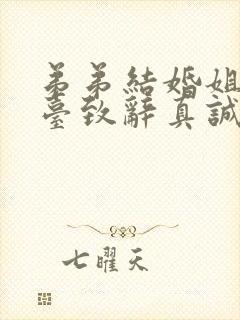 弟弟結婚姐
臺致辭真誠
七曜天